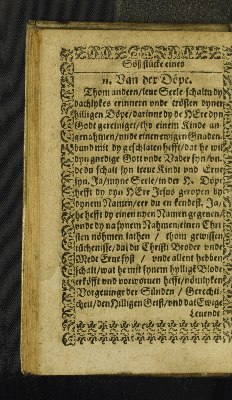 Söß stücke eines
11. Van der Döpe.
Thom andern / leue Seele schaltu dy
dachlykes erinnern vnde trösten dyner
hilligen Döpe / darinne dy de HEre dyn
Godt gereiniget / tho einem Kinde an-
genahmen / vnde einen ewigen Gnaden-
bundt mit dy geschlaten hefft / dat he wil
dyn gnedige Gott vnde Vader syn / vn-
de du schalt syn leeue Kindt vnd Erue
syn. Ja / myne Seele / in der H. Döpe
hefft dy dyn HEre Jesus geropen by
dynem Namen / eer du en kendest. Ja /
he hefft dy einen nyen Namen gegeuen /
vnde dy na synem Nahmen / einen Chri-
sten nöhmen lathen / thom gewissen
tüchenisse / dat du Christi Broder vnde
Mede Erue syst / vnde allent hebben
schalt / wat he mit synem hyllige Blode
erköfft vnd vorworuen hefft / nömlyken
Vorgeuinge der Sünden / Gerechti-
cheit / den Hilligen Geist / vnd dat Ewige
Leuendt